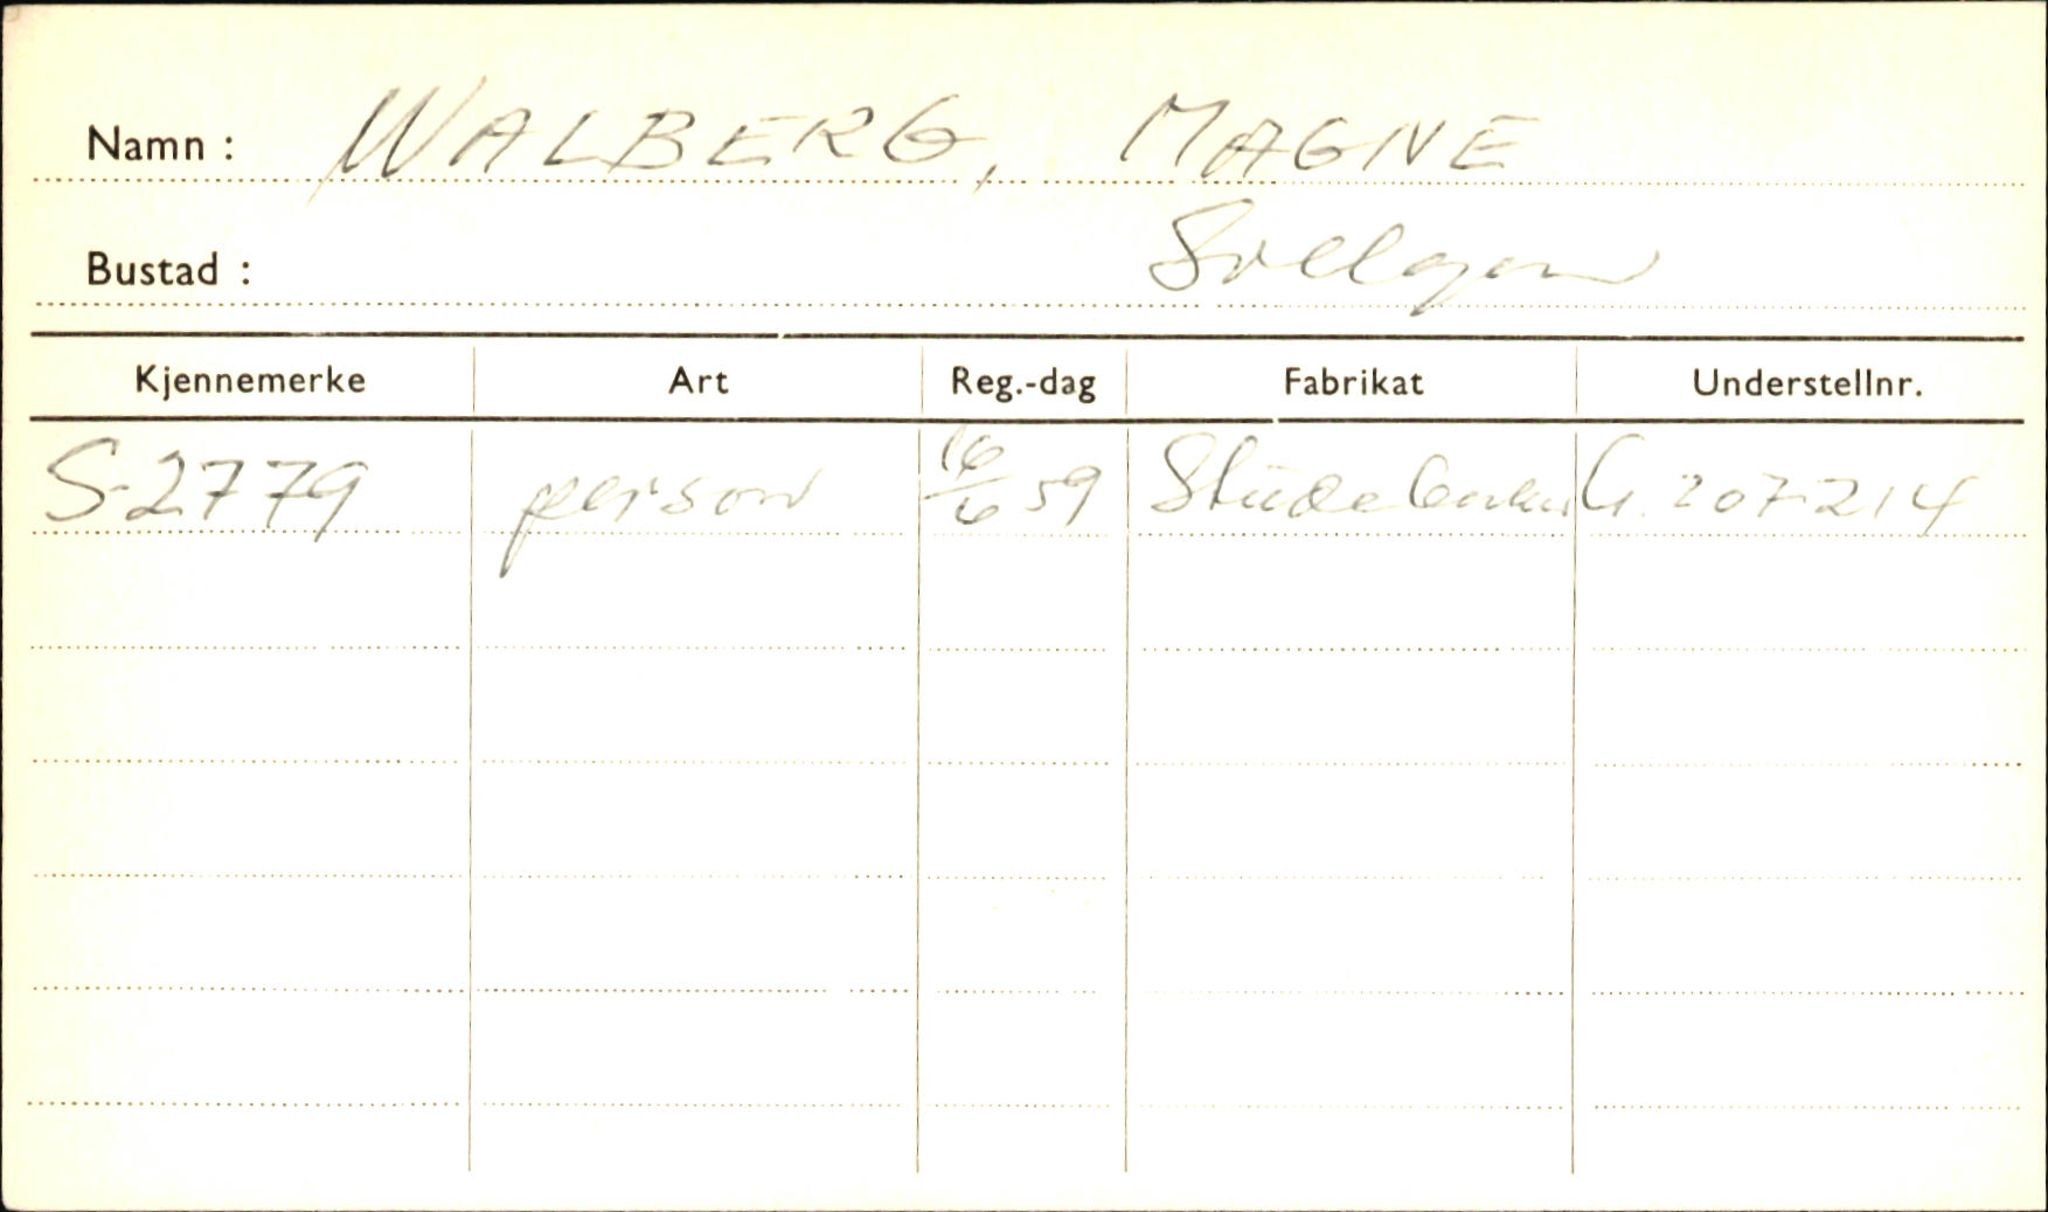 Namn : WALBERG, MAGNE
Bustad : Svelgen
Kjennemerke Art Reg.-dag Fabrikat Understellnr.
S-2779 person 16/6 59 Studebaker G. 207214